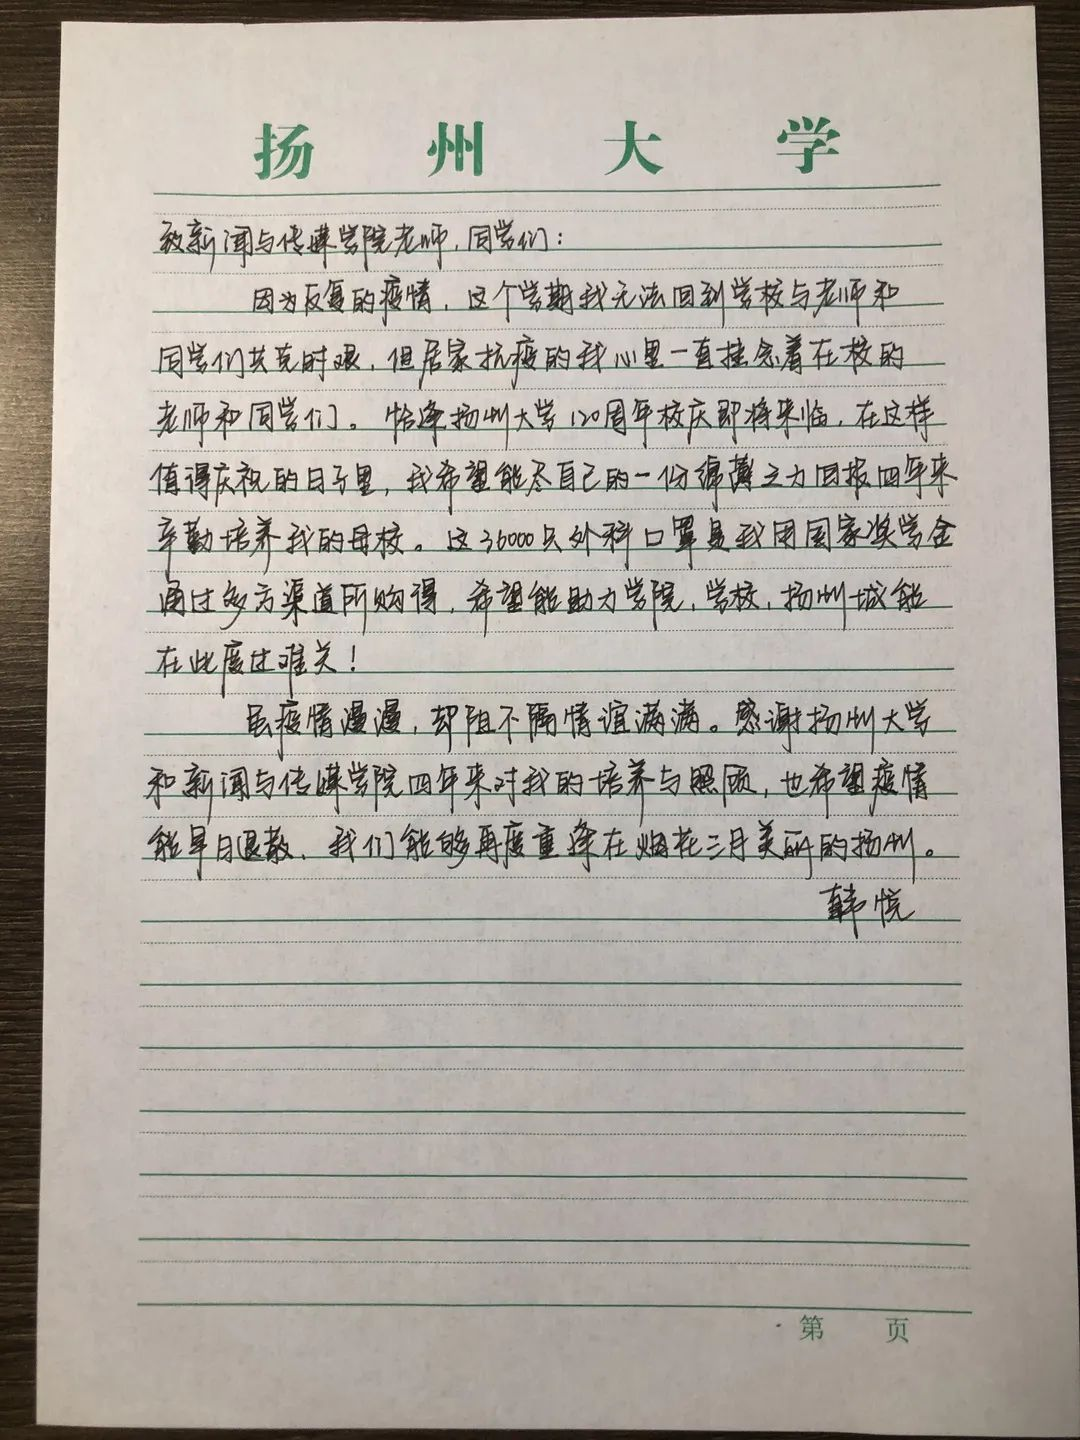 扬州大学
致新闻与传媒学院老师,同学们:
因为反复的疫情,这个学期我无法回到学校与老师和
同学们共克时艰,但居家抗疫的我心里一直挂念着在校的
老师和同学们。恰逢扬州大学120周年校庆即将来临,在这样
值得庆祝的日子里,我希望能尽自己的一份绵薄之力回报四年来
辛勤培养我的母校。这36000只外科口罩是我用国家奖学金
通过多方渠道所购得,希望能助力学院,学校,扬州城能
在此度过难关!
虽疫情漫漫,却阻不隔情谊满满。感谢扬州大学
和新闻与传媒学院四年来对我的培养与照顾,也希望疫情
能早日退散、我们能够再度重逢在烟花三月美丽的扬州。
韩悦
第 页